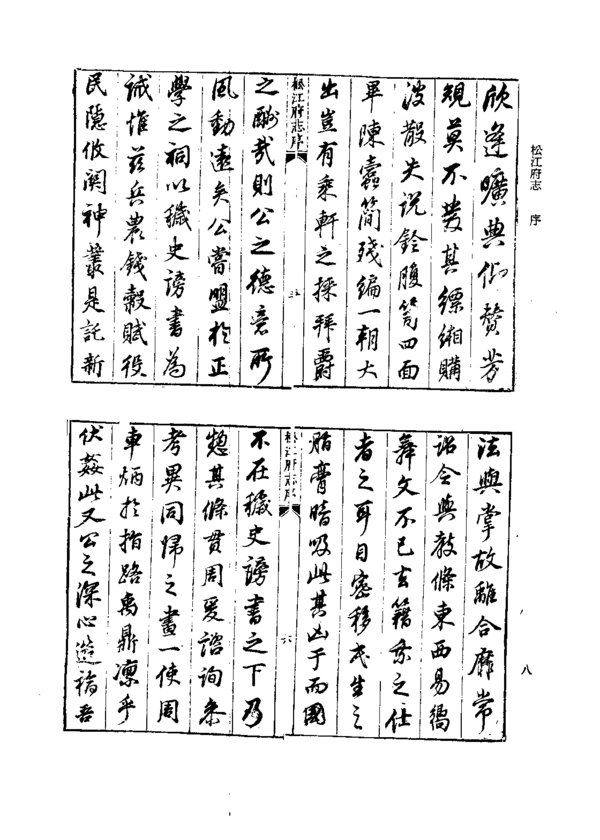 松江府志　序
欣逢曠典仰贊芳
規莫不發其縹緗購
波散失說鈴腹笥四面
畢陳蠹簡殘編一朝大
出豈有乘軒之採拜爵
松江府志序
五
之酬哉則公之德意所
風動遠矣公嘗盟於正
學之祠以穢史謗書為
誡惟茲兵農錢穀賦役
民隱攸關神叢是託新
法與掌故離合靡常
詔令與教條東西易嚮
舞文不已去籍系之仕
者之耳目密移民生之
脂膏暗吸此其凶于而國
松江府志序
六
不在穢史謗書之下乃
揔其條貫周爰諮詢叅
考異同歸之畫一使周
車炳於指路禹鼎凜乎
伏姦此又公之深心造福吾
八